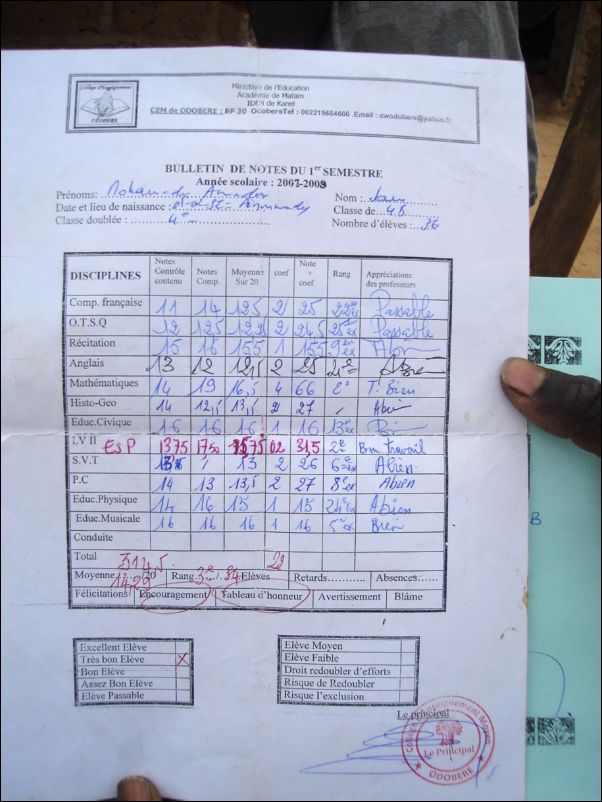 Collège d'Enseignement
ODOBERE
Ministère de l'Education
Académie de Matam
IDEN de Kanel
CEM de ODOBERE : BP 30 OdobereTel : 002219664600 .Email : cwodobere@yahoo.fr
BULLETIN DE NOTES DU 1er SEMESTRE
Année scolaire : 2007-2008
Prénoms: Nom :
Date et lieu de naissance : Classe de
Classe doublée : Nombre d'élèves : 36
DISCIPLINES Notes Contrôle contenu Notes Comp. Moyenne Sur 20 coef Note × coef. Rang Appréciations des professeurs
Comp. française 11 14 12,5 2 25 Passable
O.T.S.Q 12 12,5 2 24,5 Passable
Récitation 15 16 15,5 1 15,5
Anglais 13 12 12,5 2 25 Abien
Mathématiques 14 19 16,5 4 66 2e T. Bien
Histo-Geo 14 2 27 Abien
Educ.Civique 16 16 16 1 16 Bien
LV II ESP 13,75 17,50 15,75 02 31,5 2e Bon travail
S.V.T 13 2 26 Abien
P.C 14 13 13,5 2 27 8e ex Abien
Educ.Physique 14 16 15 1 15 24e ex Abien
Educ.Musicale 16 16 16 1 16 5e ex Bien
Conduite
Total 314,5
Moyenne 14,29 /20 Rang 3e / 34 Elèves Retards........... Absences......
Félicitations Encouragement Tableau d'honneur Avertissement Blâme
Excellent Elève
Très bon Elève X
Bon Elève
Assez Bon Elève
Elève Passable
Elève Moyen
Elève Faible
Droit redoubler d'efforts
Risque de Redoubler
Risque l'exclusion
Le principal
Collège d'Enseignement Moyen
Le Principal
ODOBERE
B